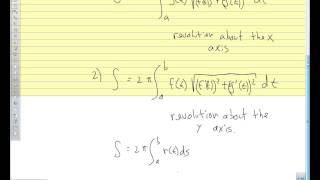 S = 2π ∫_a^b g(t) √((f'(t))² + (g'(t))²) dt
revolution about the x
axis
2) S = 2π ∫_a^b f(t) √((f'(t))² + (g'(t))²) dt
revolution about the
y axis.
S = 2π ∫_a^b r(t) ds